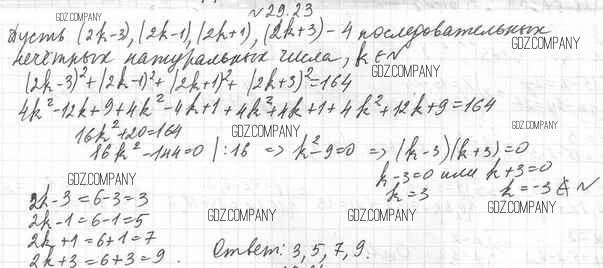 № 29.23
GDZ.COMPANY
Пусть (2k-3), (2k-1), (2k+1), (2k+3) - 4 последовательных
GDZ.COMPANY
нечётных натуральных числа, k ∈ N
GDZ.COMPANY
(2k-3)²+(2k-1)²+(2k+1)²+(2k+3)²=164
4k²-12k+9+4k²-4k+1+4k²+4k+1+4k²+12k+9=164
GDZ.COMPANY
GDZ.COMPANY
16k²+20=164
16k²-144=0 |:16 => k²-9=0 => (k-3)(k+3)=0
k-3=0 или k+3=0
k=3 k=-3 ∉ N
GDZ.COMPANY
2k-3=6-3=3
GDZ.COMPANY
2k-1=6-1=5
GDZ.COMPANY GDZ.COMPANY
2k+1=6+1=7
2k+3=6+3=9. Ответ: 3, 5, 7, 9.
GDZ.COMPANY